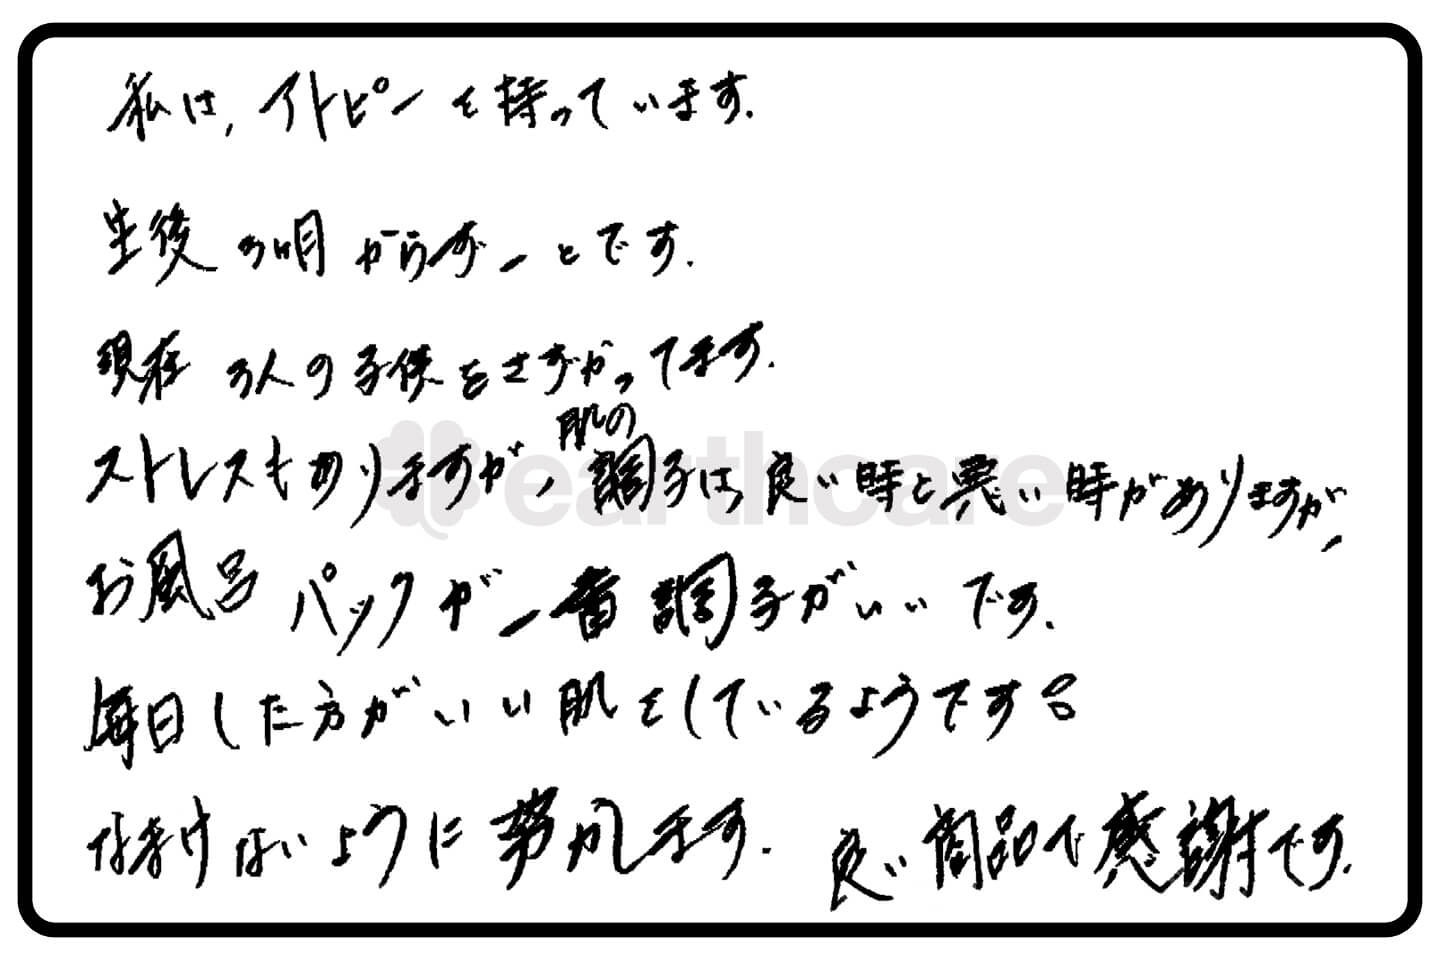 私は、アトピーを持っています。
生後3ヶ月からずーとです。
現在 3人の子供をさずかってます。
ストレスもありますが、肌の調子は良い時と悪い時がありますが、
お風呂 パックが一番調子がいいです。
毎日した方がいい肌をしているようです。
なまけないように努力します。良い商品で感謝です。
earthcare